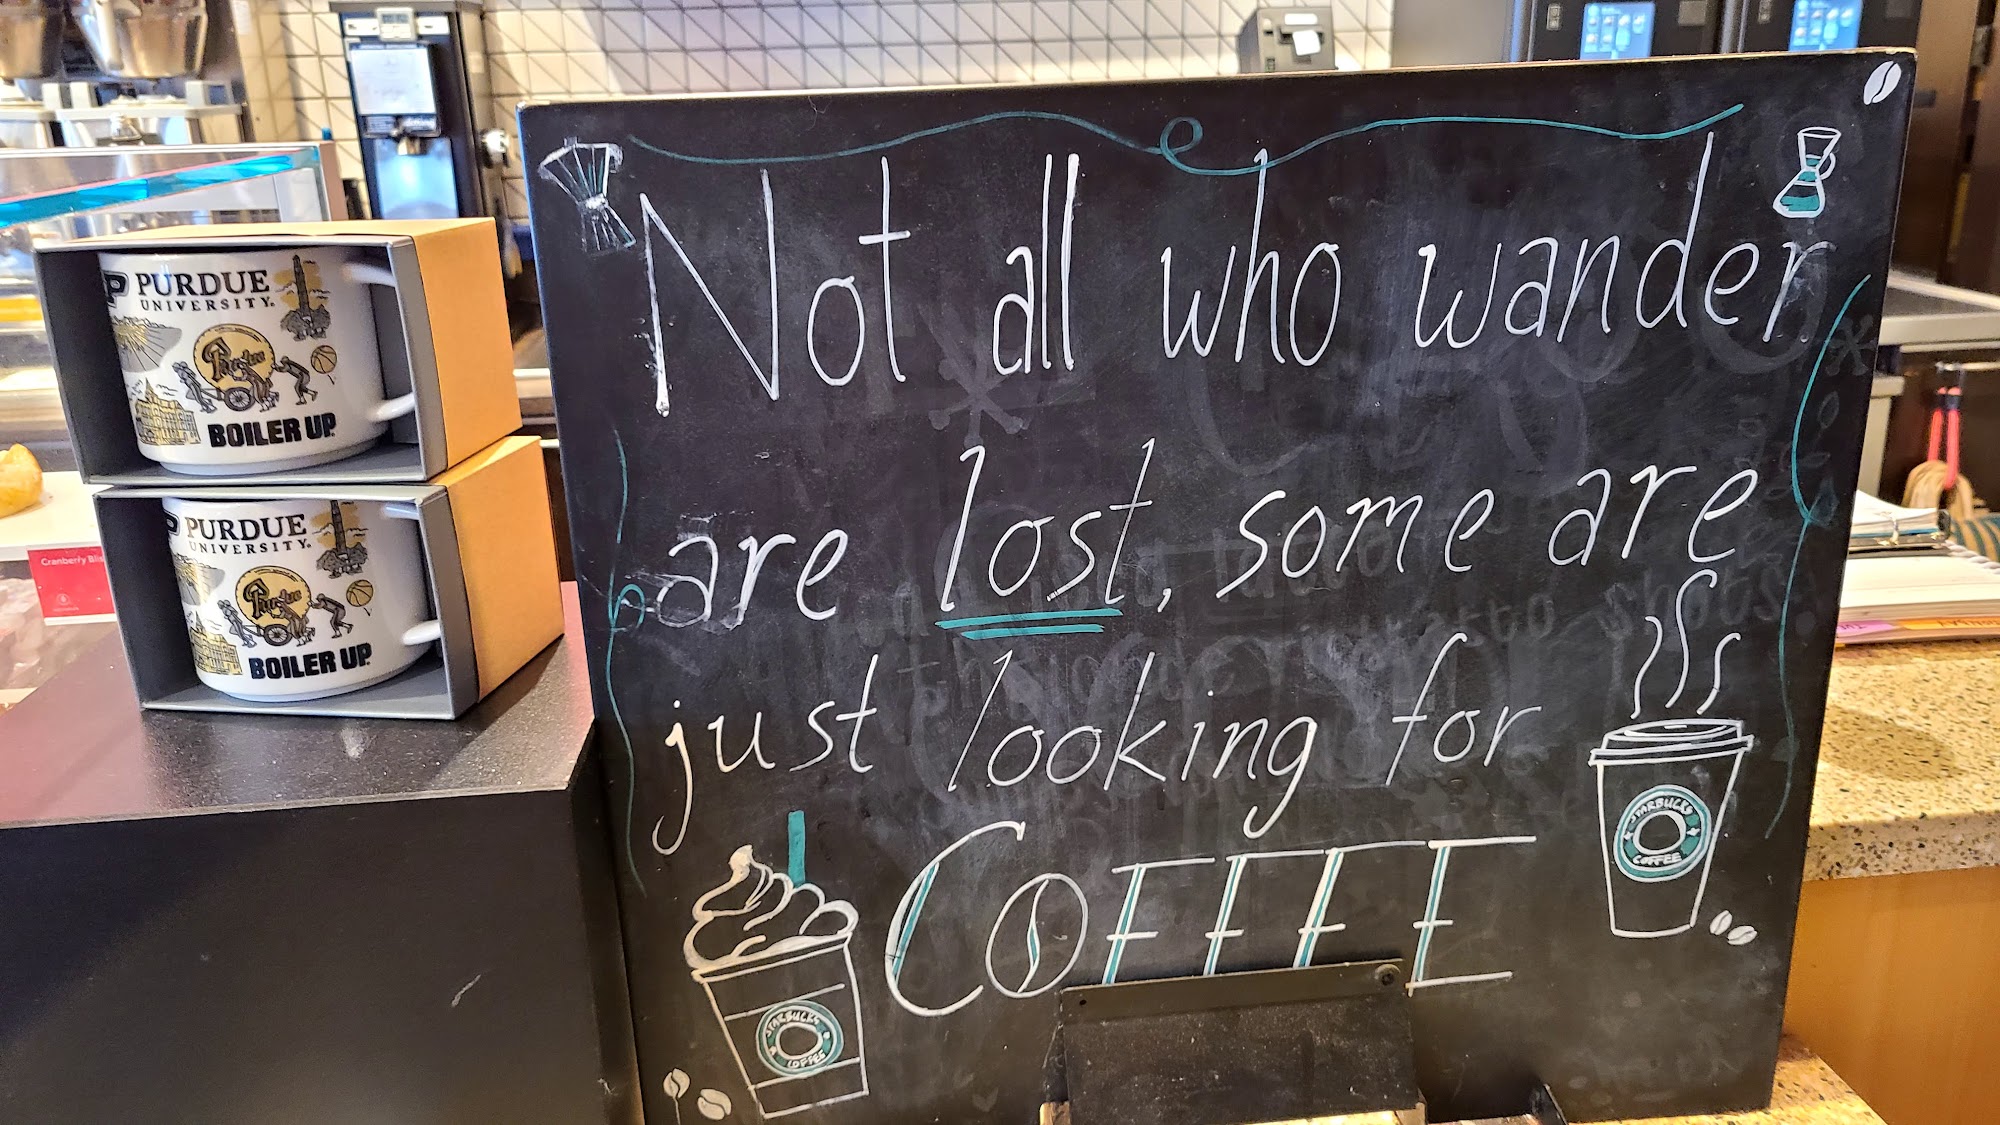 Not all who wander
are lost, some are
just looking for
COFFEE
STARBUCKS
COFFEE
STARBUCKS
COFFEE
P PURDUE
UNIVERSITY.
Purdue
BOILER UP.
PURDUE
UNIVERSITY.
Purdue
BOILER UP.
Cranberry